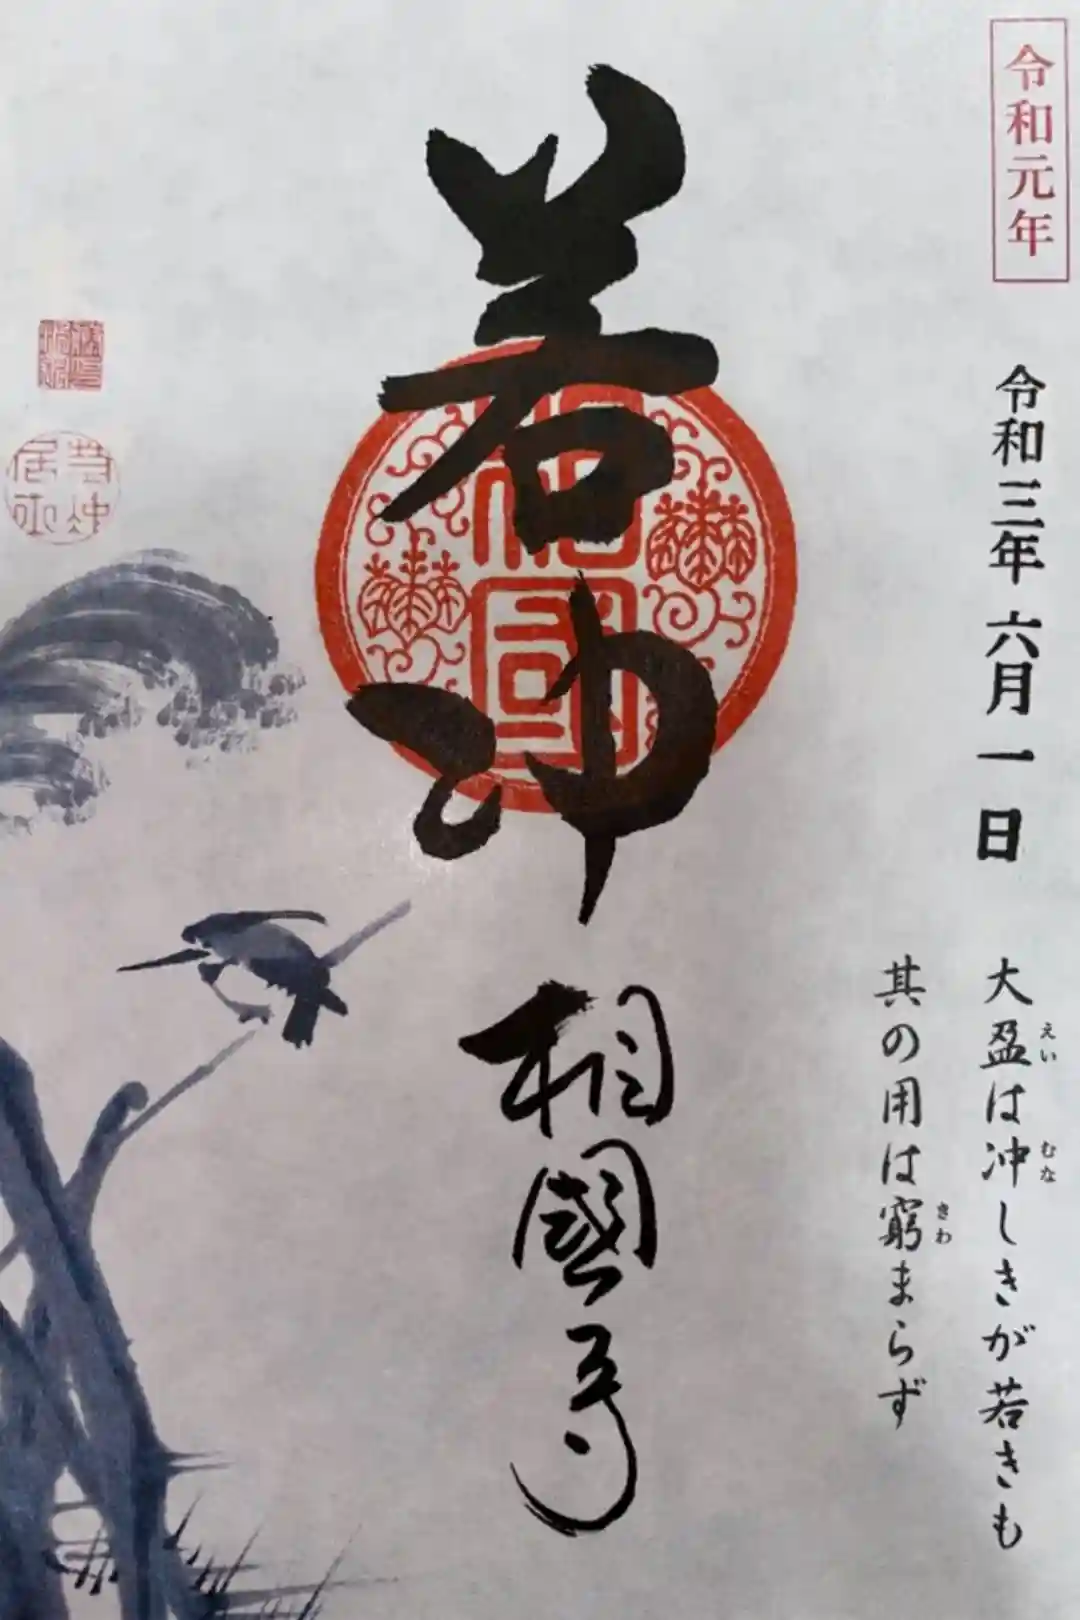 令和元年
令和三年 六月 一日
大盈は冲しきが若きも
えい
むな
其の用は窮まらず
きわ
若冲
相國寺
相國
若冲居士